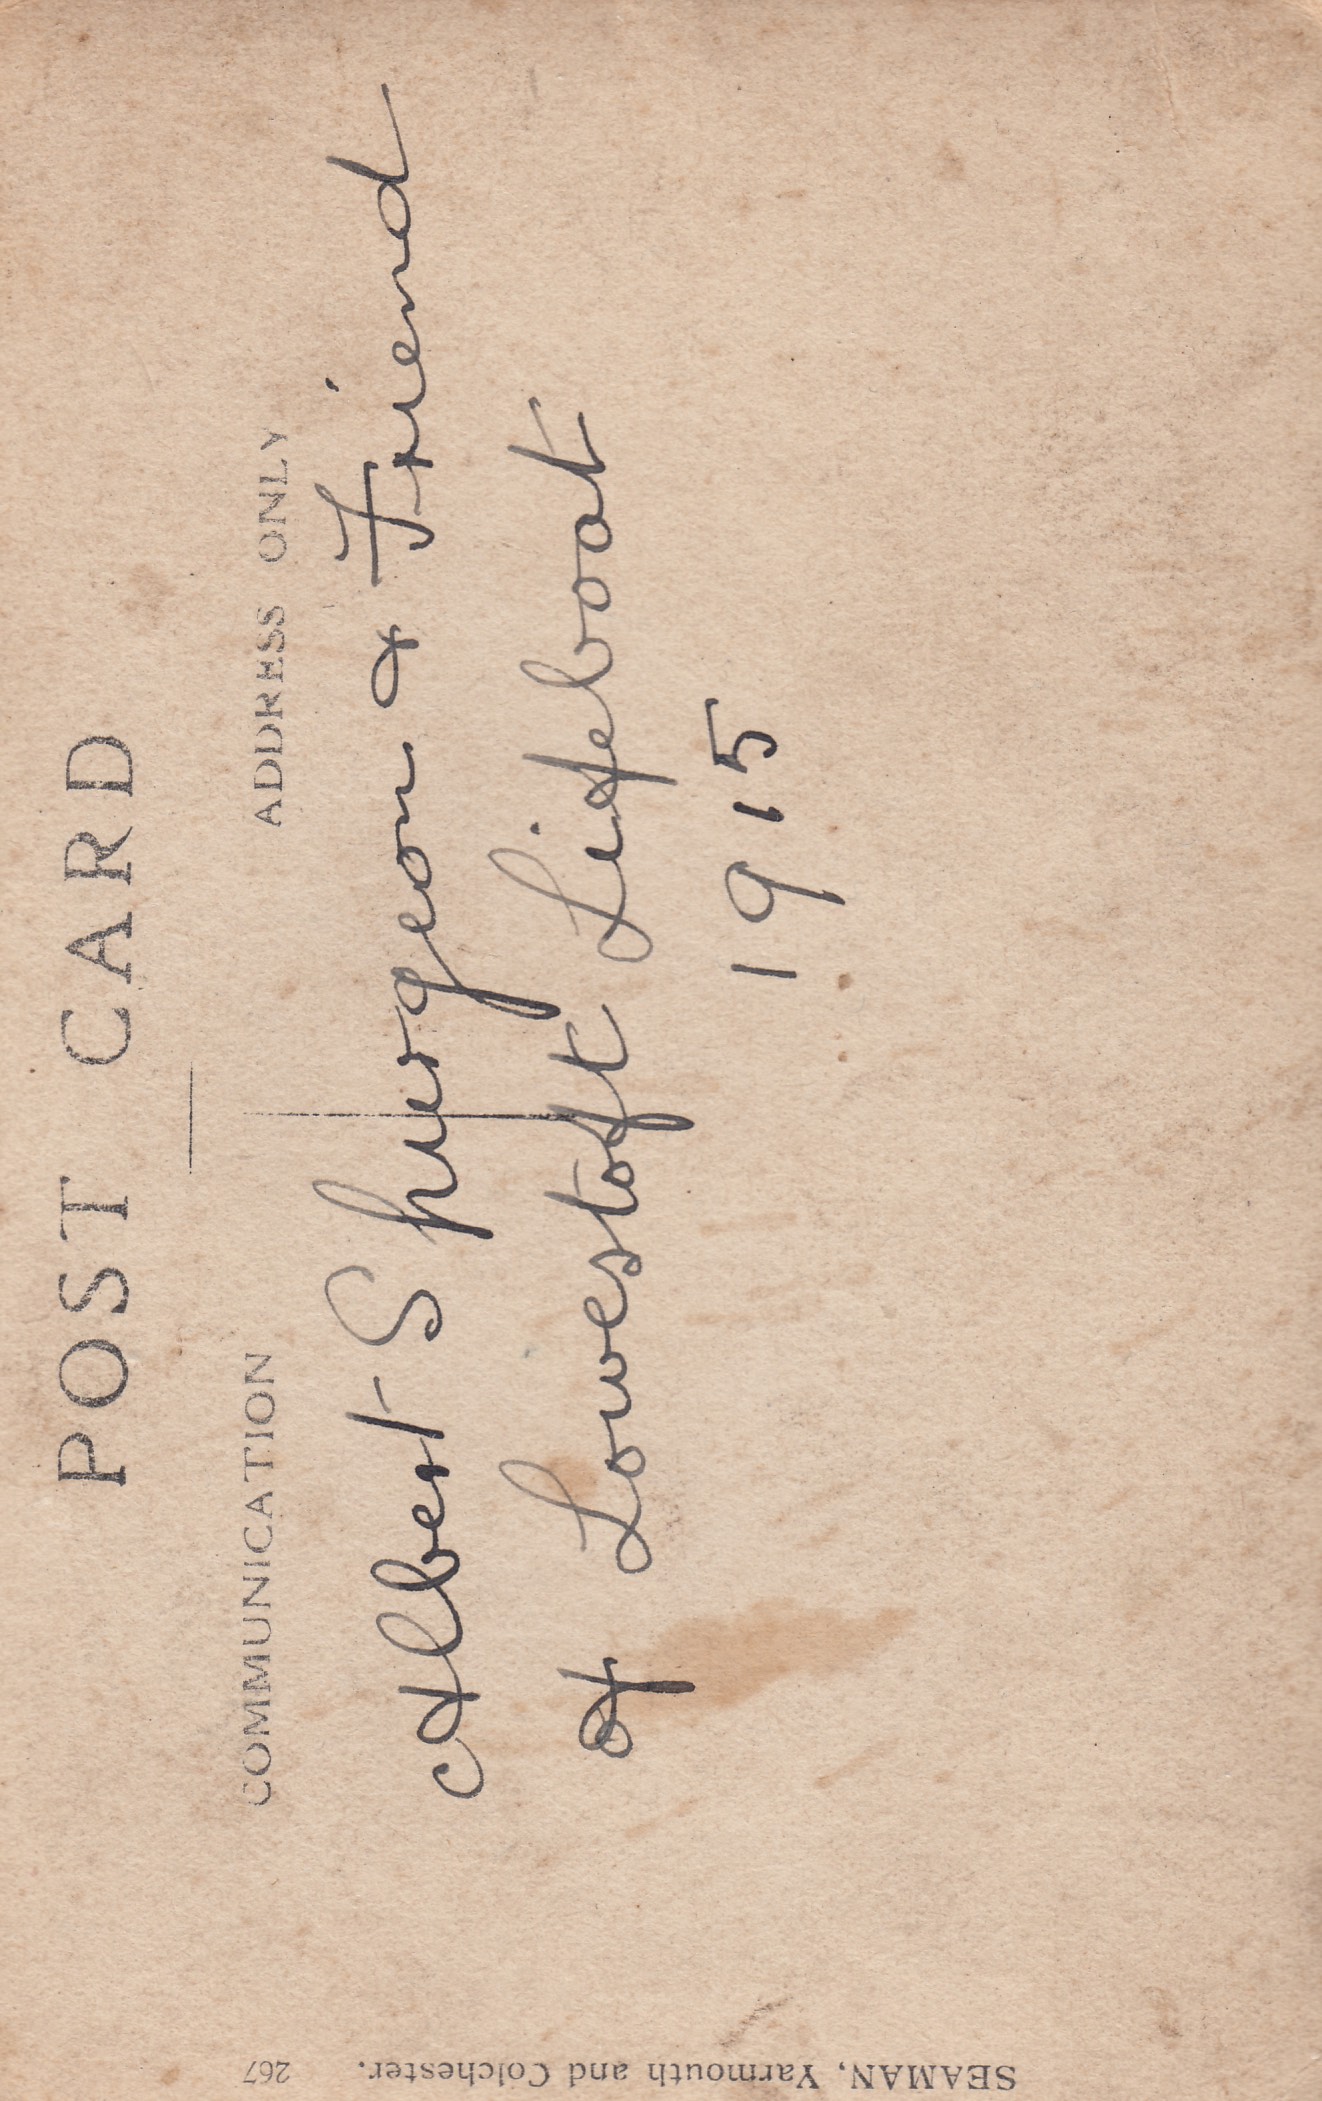 POST CARD
COMMUNICATION ADDRESS ONLY
Albert Spurgeon & Friend
of Lowestoft Lifeboat
1915
SEAMAN, Yarmouth and Colchester. 267